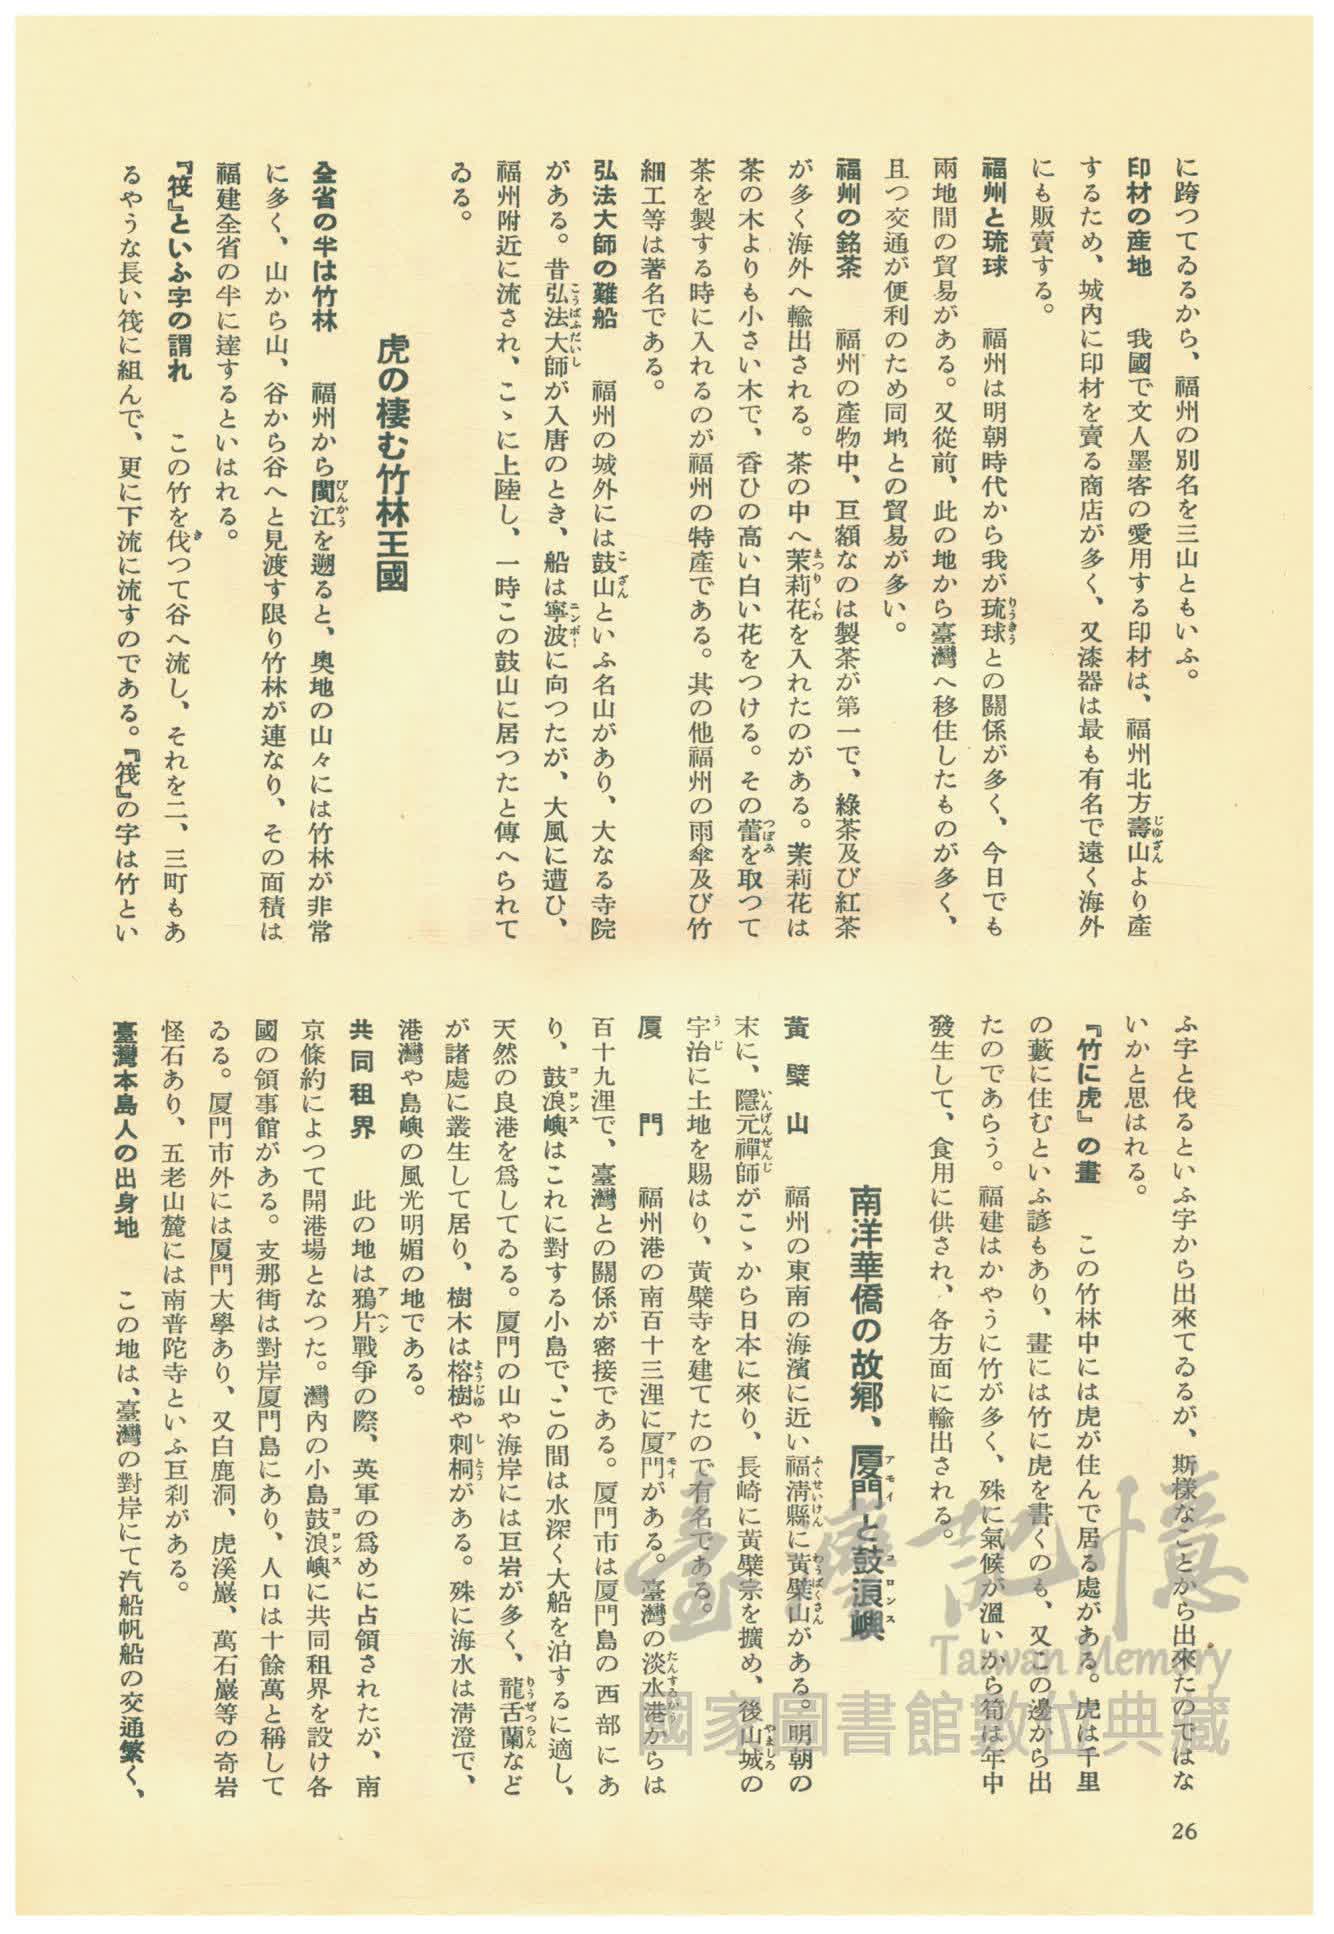 に跨つてゐるから、福州の別名を三山ともいふ。
印材の産地　我國で文人墨客の愛用する印材は、福州北方壽山より産
するため、城內に印材を賣る商店が多く、又漆器は最も有名で遠く海外
にも販賣する。
福州と琉球　福州は明朝時代から我が琉球との關係が多く、今日でも
兩地間の貿易がある。又從前、此の地から臺灣へ移住したものが多く、
且つ交通が便利のため同地との貿易が多い。
福州の銘茶　福州の產物中、巨額なのは製茶が第一で、綠茶及び紅茶
が多く海外へ輸出される。茶の中へ茉莉花を入れたのがある。茉莉花は
茶の木よりも小さい木で、香ひの高い白い花をつける。その蕾を取つて
茶を製する時に入れるのが福州の特產である。其の他福州の雨傘及び竹
細工等は著名である。
弘法大師の難船　福州の城外には鼓山といふ名山があり、大なる寺院
がある。昔弘法大師が入唐のとき、船は寧波に向つたが、大風に遭ひ、
福州附近に流され、こゝに上陸し、一時この鼓山に居つたと傳へられて
ゐる。
虎の棲む竹林王國
全省の半は竹林　福州から閩江を遡ると、奧地の山々には竹林が非常
に多く、山から山、谷から谷へと見渡す限り竹林が連なり、その面積は
福建全省の半に達するといはれる。
『筏』といふ字の謂れ　この竹を伐つて谷へ流し、それを二、三町もあ
るやうな長い筏に組んで、更に下流に流すのである。『筏』の字は竹とい
ふ字と伐るといふ字から出來てゐるが、斯樣なことから出來たのではな
いかと思はれる。
『竹に虎』の畫　この竹林中には虎が住んで居る處がある。虎は千里
の藪に住むといふ諺もあり、畫には竹に虎を書くのも、又この邊から出
たのであらう。福建はかやうに竹が多く、殊に氣候が溫いから筍は年中
發生して、食用に供され、各方面に輸出される。
南洋華僑の故鄕、厦門と鼓浪嶼
黃檗山　福州の東南の海濱に近い福淸縣に黃檗山がある。明朝の
末に、隱元禪師がこゝから日本に來り、長崎に黃檗宗を擴め、後山城の
宇治に土地を賜はり、黃檗寺を建てたので有名である。
厦門　福州港の南百十三浬に厦門がある。臺灣の淡水港からは
百十九浬で、臺灣との關係が密接である。厦門市は厦門島の西部にあ
り、鼓浪嶼はこれに對する小島で、この間は水深く大船を泊するに適し、
天然の良港を爲してゐる。厦門の山や海岸には巨岩が多く、龍舌蘭など
が諸處に叢生して居り、樹木は榕樹や刺桐がある。殊に海水は淸澄で、
港灣や島嶼の風光明媚の地である。
共同租界　此の地は鴉片戰爭の際、英軍の爲めに占領されたが、南
京條約によつて開港場となつた。灣內の小島鼓浪嶼に共同租界を設け各
國の領事館がある。支那街は對岸厦門島にあり、人口は十餘萬と稱して
ゐる。厦門市外には厦門大學あり、又白鹿洞、虎溪巖、萬石巖等の奇岩
怪石あり、五老山麓には南普陀寺といふ巨刹がある。
臺灣本島人の出身地　この地は、臺灣の對岸にて汽船帆船の交通繁く、
26
臺灣記憶
Taiwan Memory
國家圖書館數位典藏